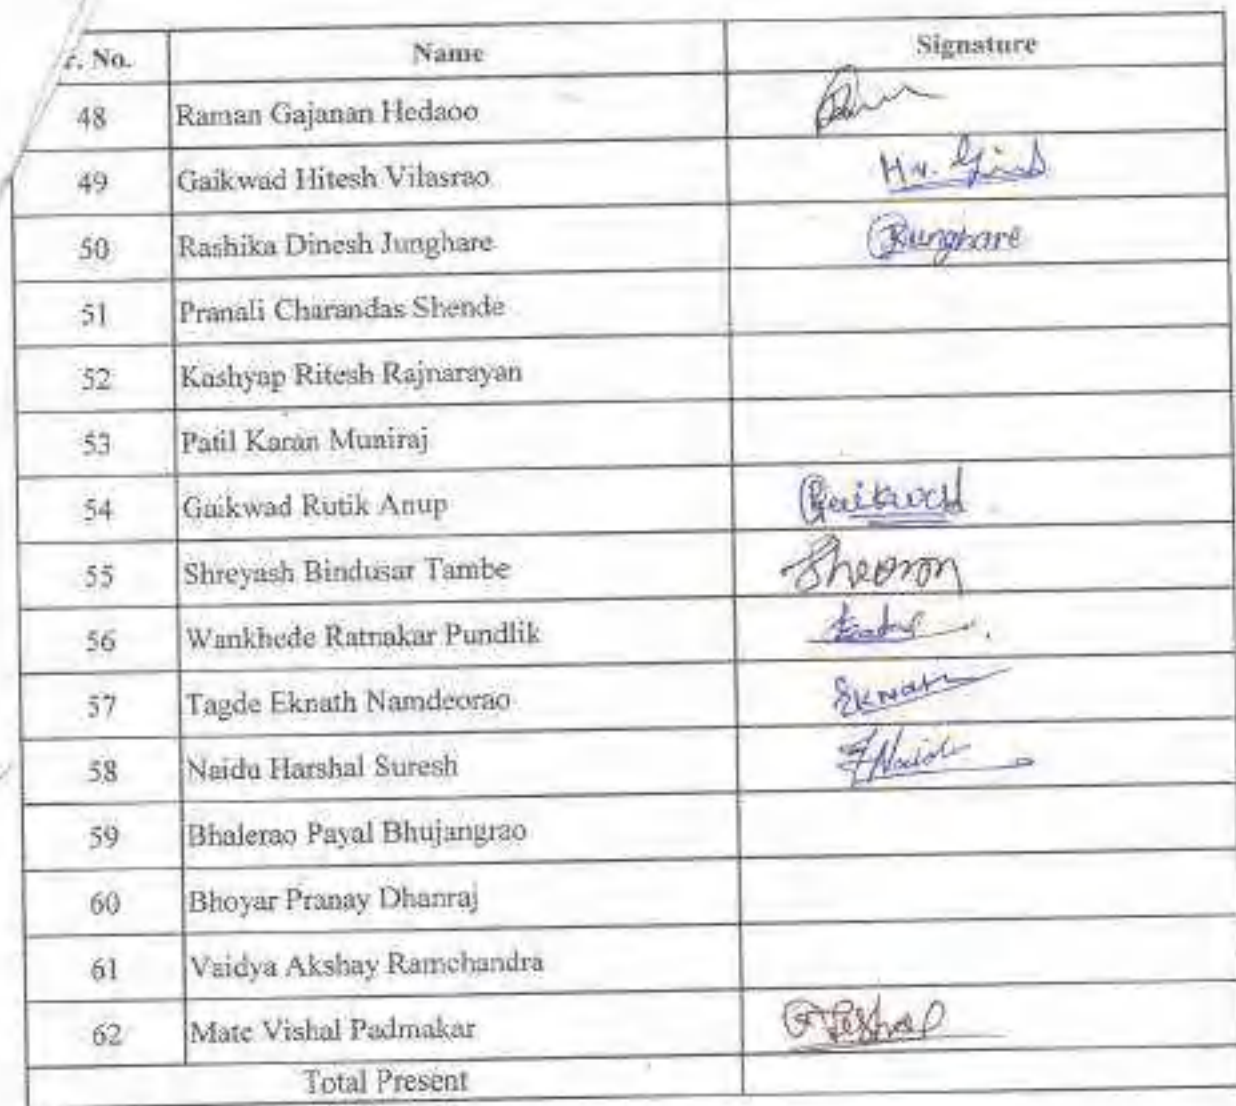 r. No. Name Signature
48 Raman Gajanan Hedaoo
49 Gaikwad Hitesh Vilasrao H.v.
50 Rashika Dinesh Junghare RJunghare
51 Pranali Charandas Shende
52 Kashyap Ritesh Rajnarayan
53 Patil Karan Muniraj
54 Gaikwad Rutik Anup Gaikwad
55 Shreyash Bindusar Tambe
56 Wankhede Ratnakar Pundlik
57 Tagde Eknath Namdeorao Eknath
58 Naidu Harshal Suresh
59 Bhalerao Payal Bhujangrao
60 Bhoyar Pranay Dhanraj
61 Vaidya Akshay Ramchandra
62 Mate Vishal Padmakar
Total Present